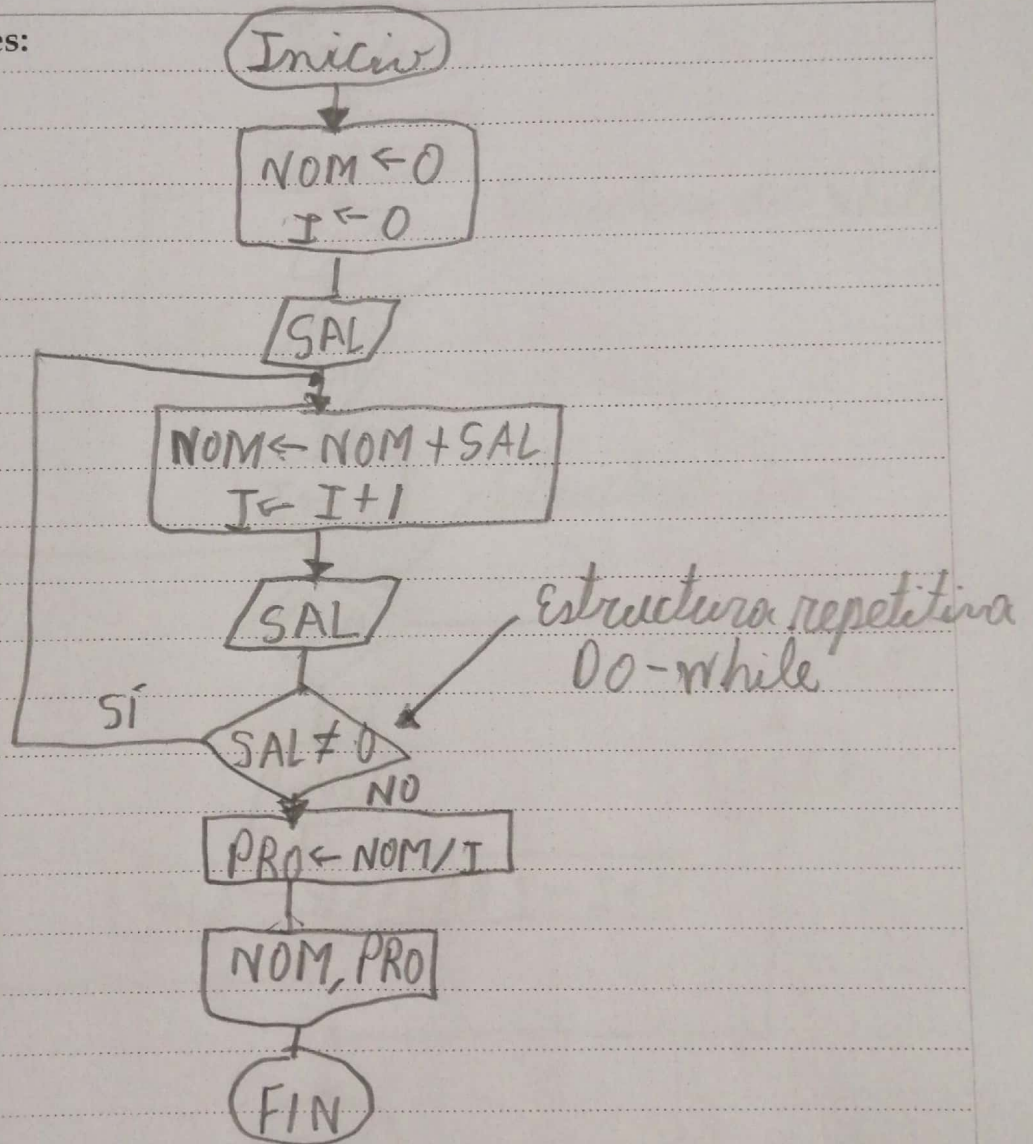 es:
Inicio
NOM ← 0
I ← 0
SAL
NOM ← NOM + SAL
I ← I + 1
SAL
Estructura repetitiva
DO-while
SÍ
SAL ≠ 0
NO
PRO ← NOM/I
NOM, PRO
FIN